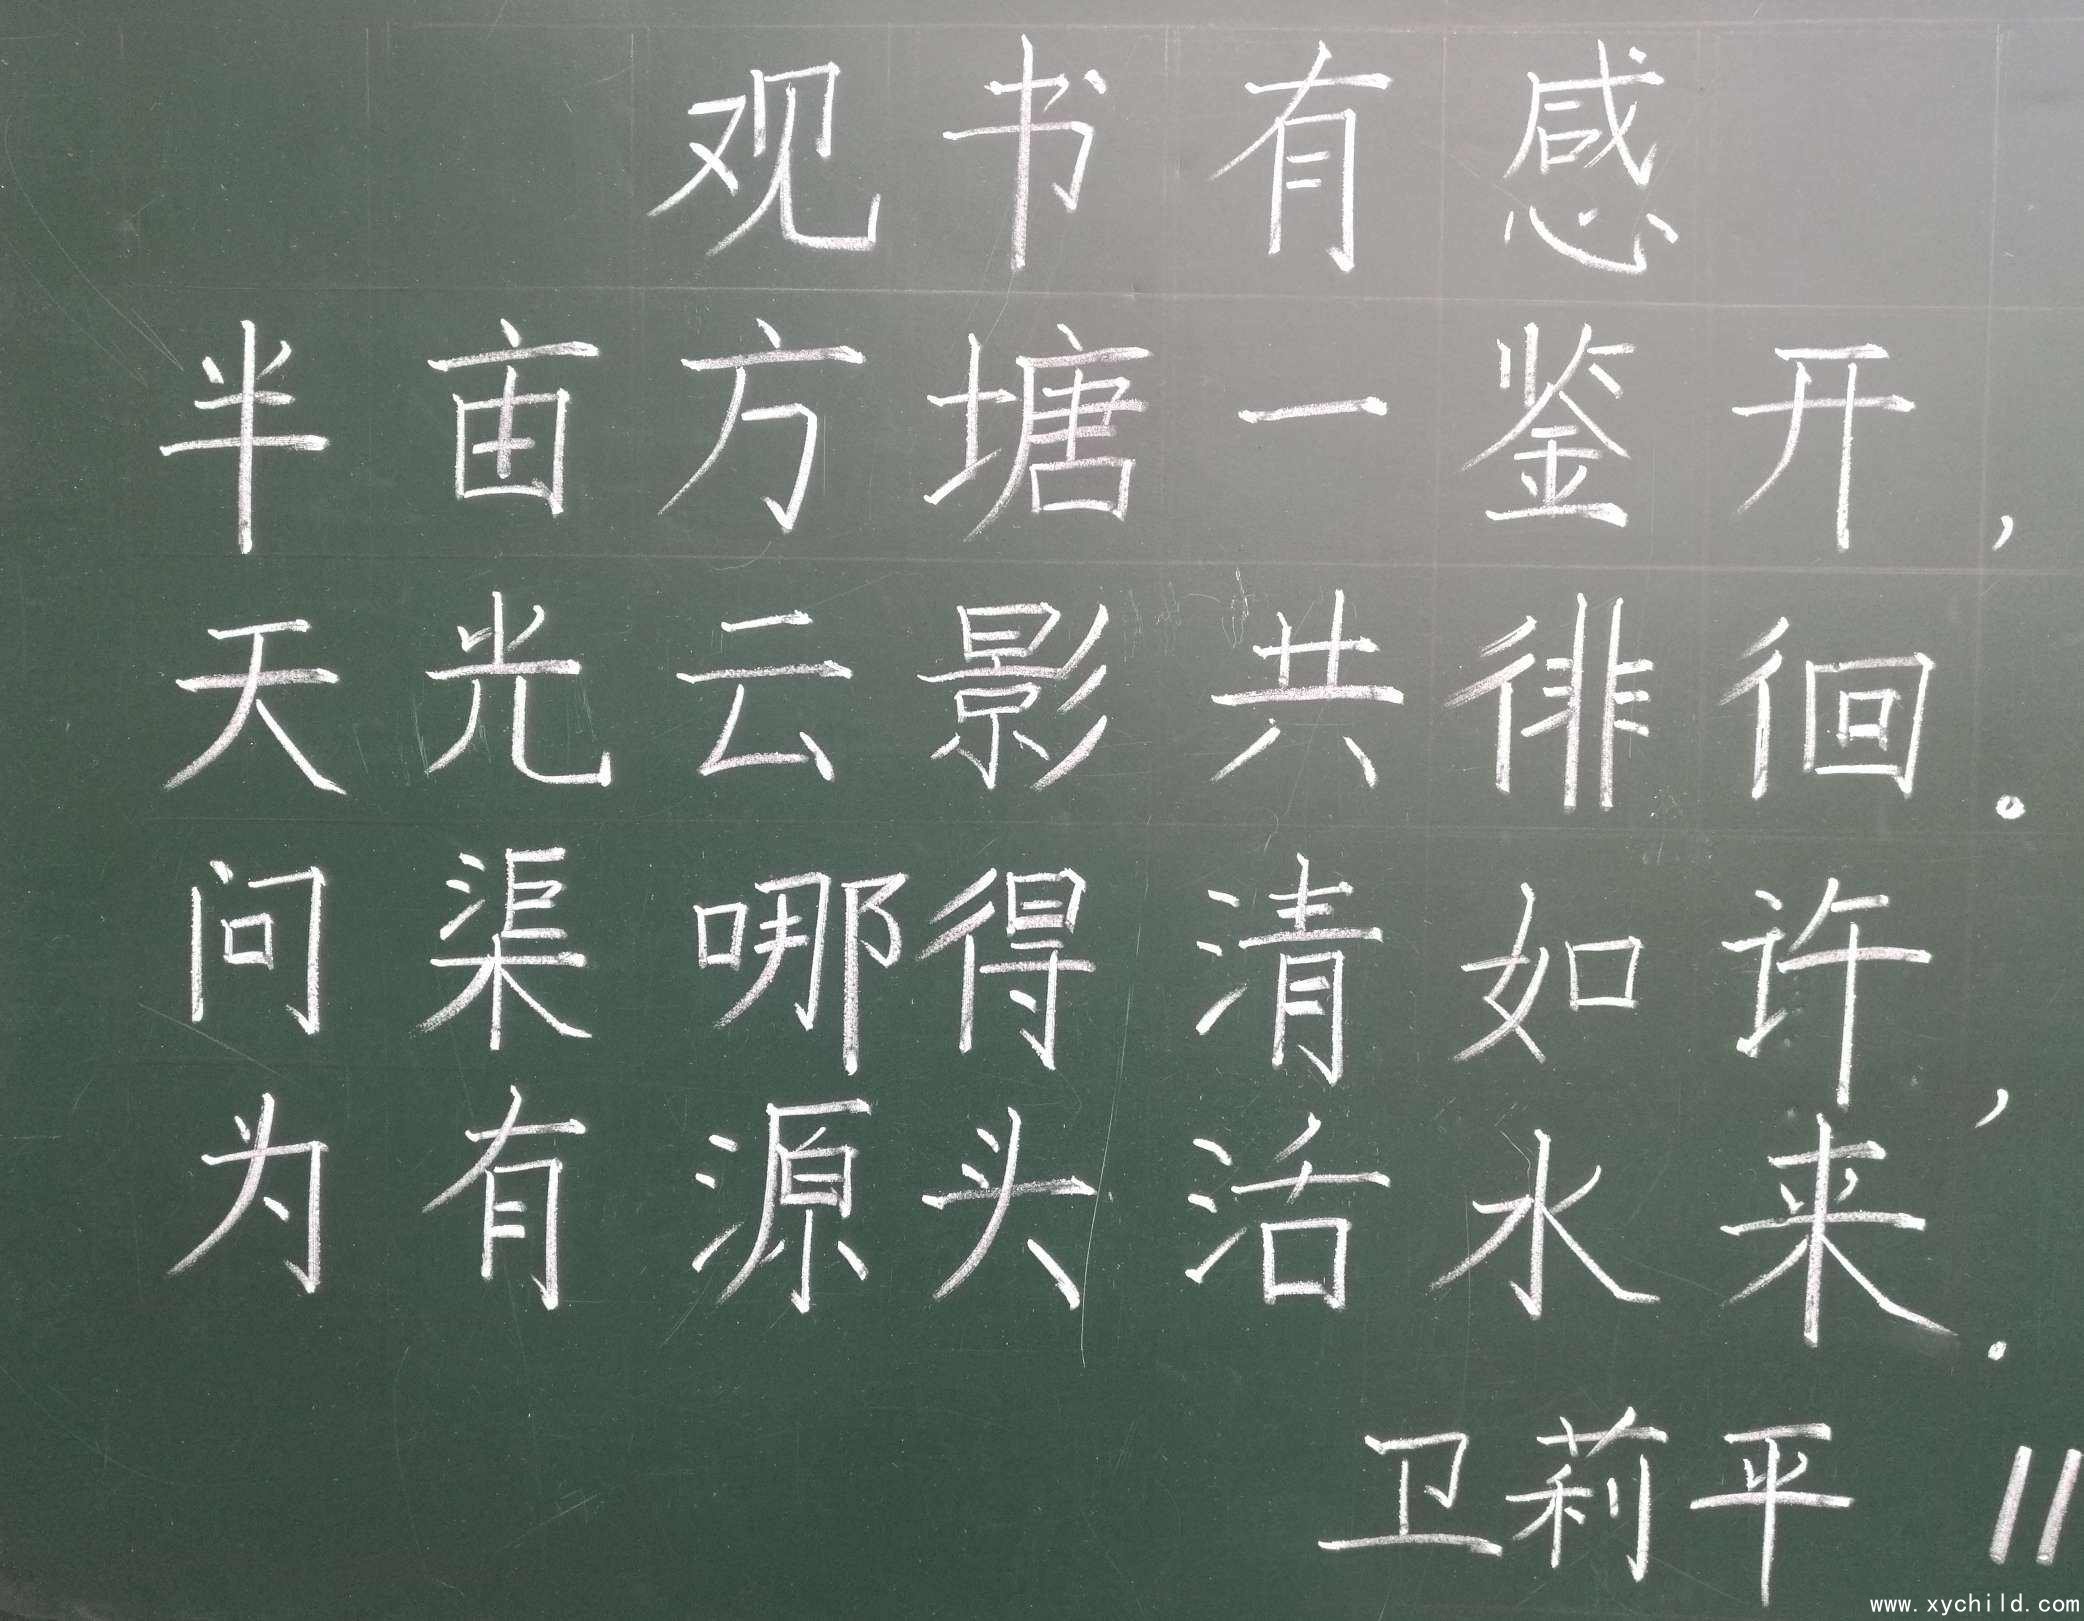 观书有感
半亩方塘一鉴开，
天光云影共徘徊。
问渠哪得清如许，
为有源头活水来。
卫莉平 11
www.xychild.com